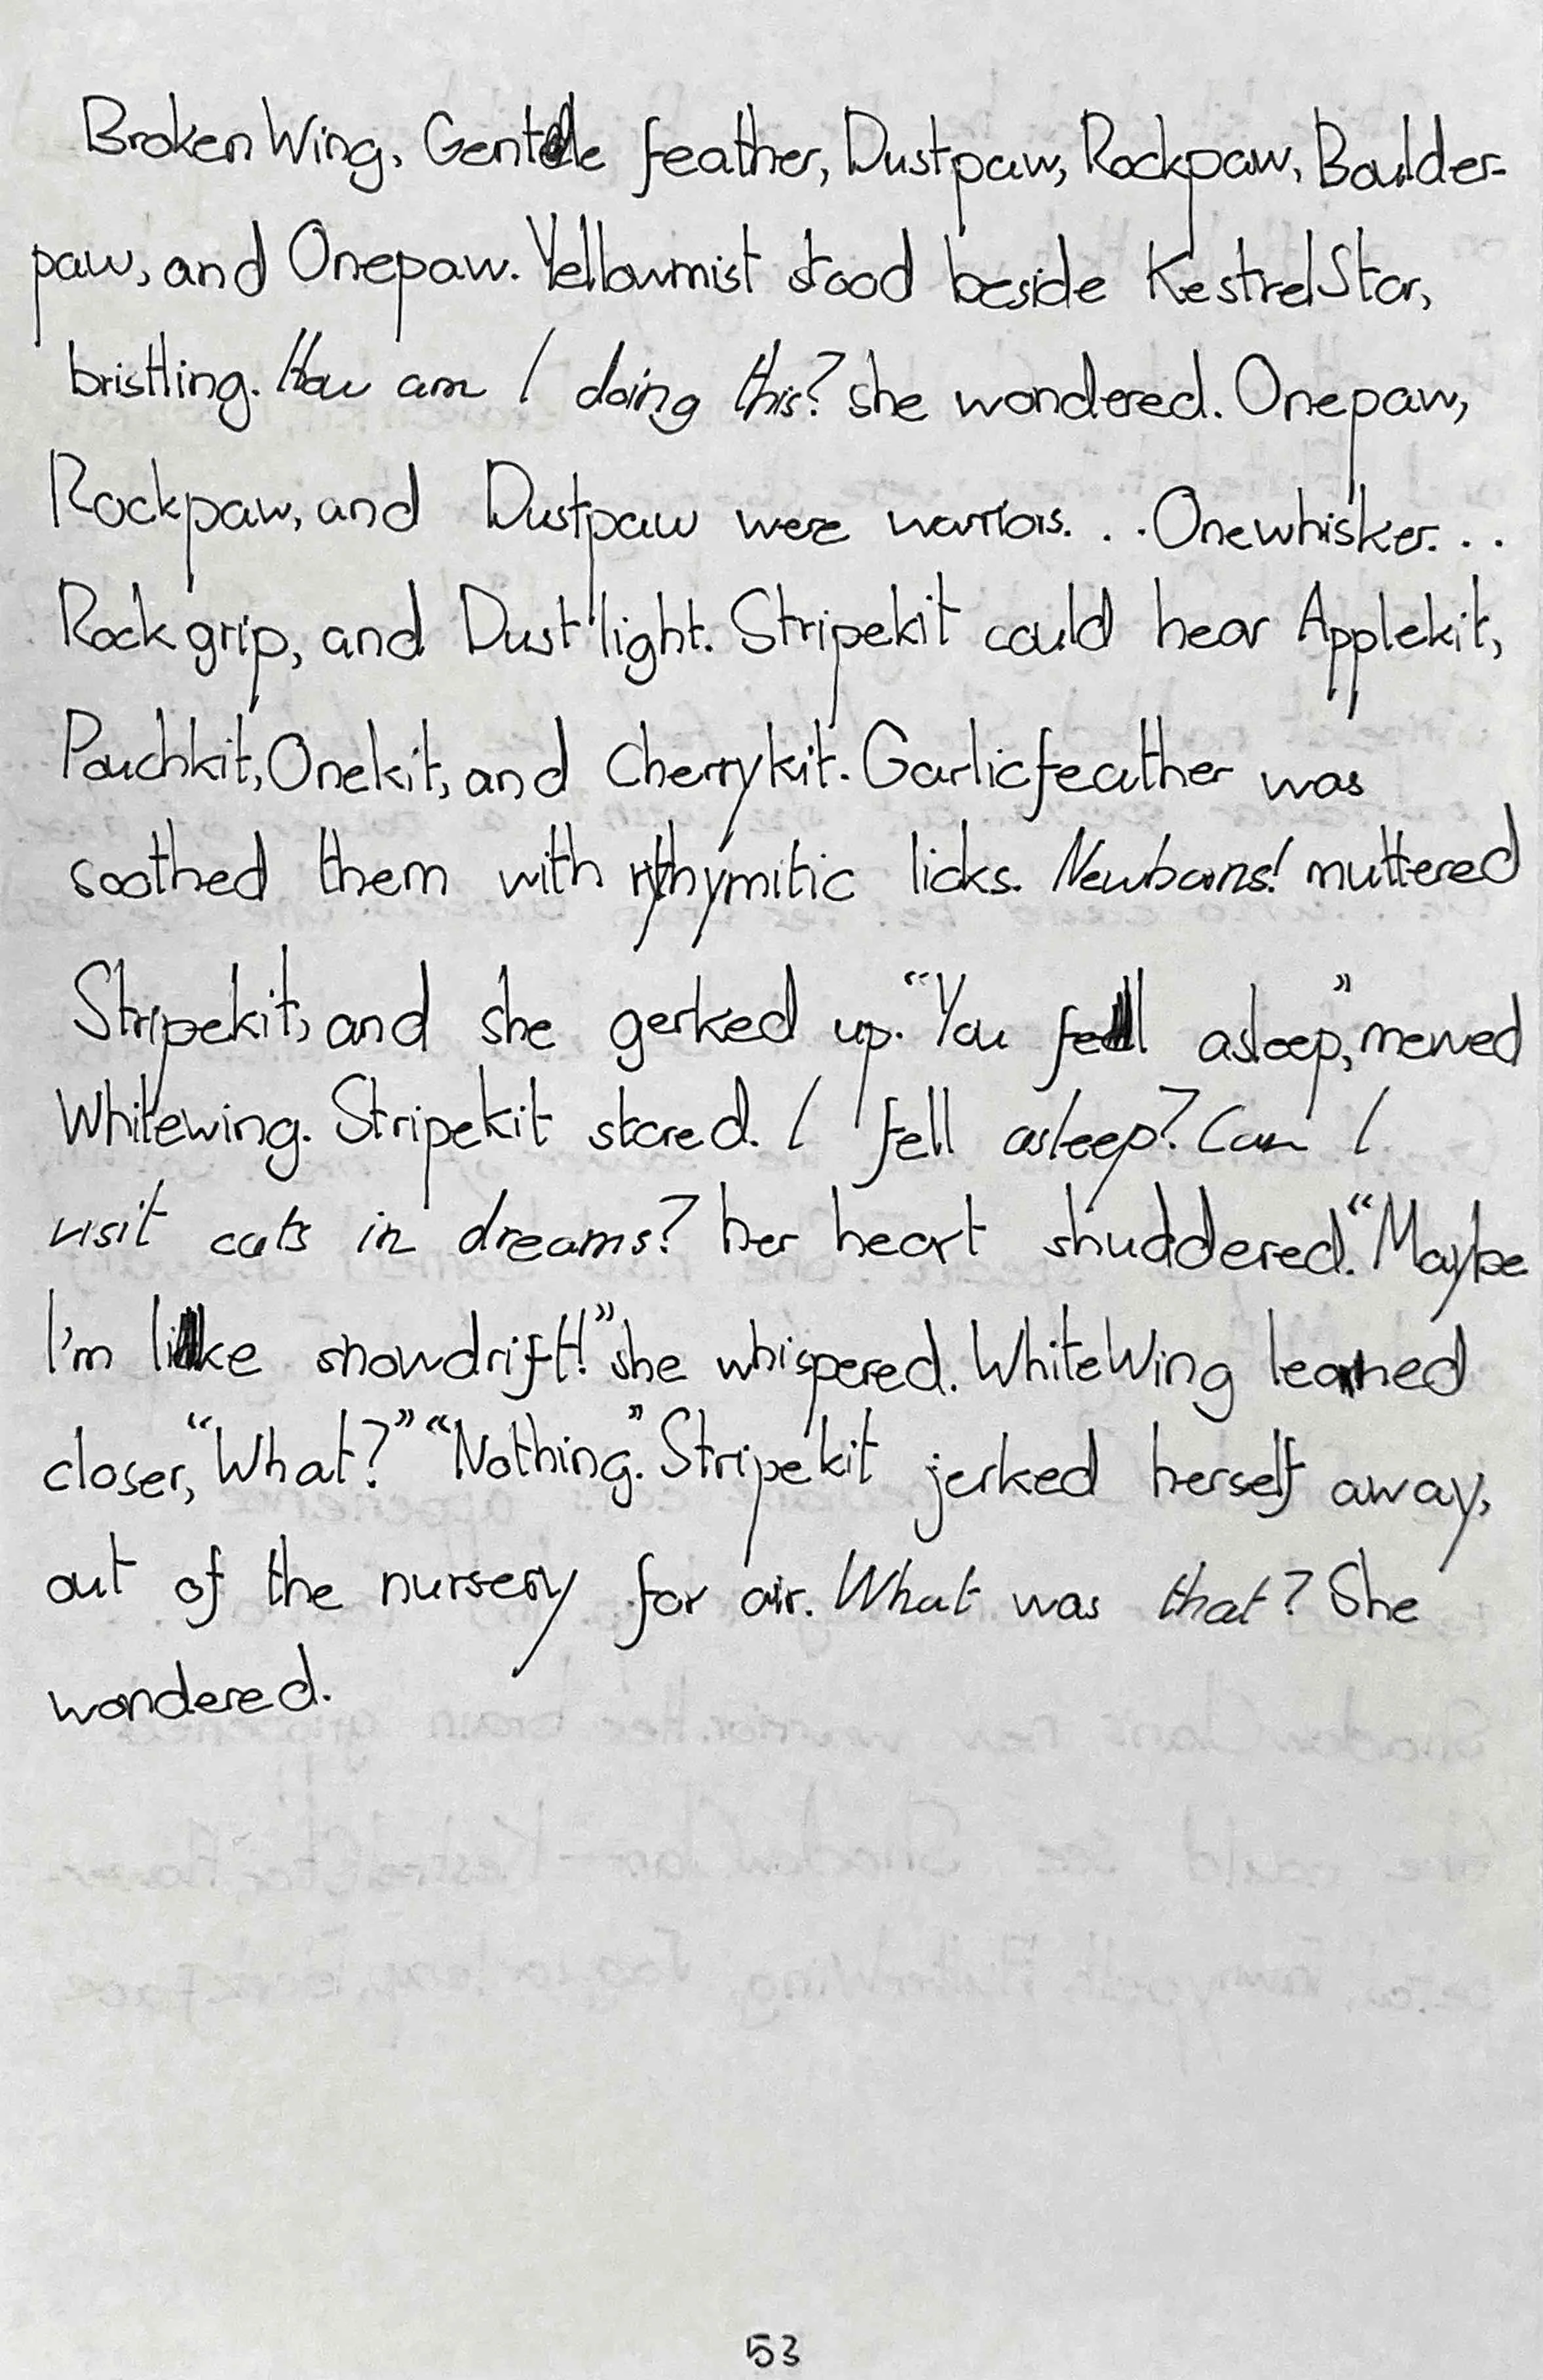 Broken Wing, Gentle feather, Dustpaw, Rockpaw, Boulder-
paw, and Onepaw. Yellowmist stood beside KestrelStar,
bristling. How am I doing this? she wondered. Onepaw,
Rockpaw, and Dustpaw were warriors. . . Onewhisker. . .
Rockgrip, and Dust light. Stripekit could hear Applekit,
Pouchkit, Onekit, and Cherrykit. Garlicfeather was
soothed them with rythymitic licks. Newborns! muttered
Stripekit, and she gerked up. "You fell asleep," mewed
Whitewing. Stripekit stared. I fell asleep? Can I
visit cats in dreams? her heart shuddered. "Maybe
I'm like snowdrift!" she whispered. WhiteWing leaned
closer, "What?" "Nothing." Stripekit jerked herself away,
out of the nursery for air. What was that? She
wondered.
53